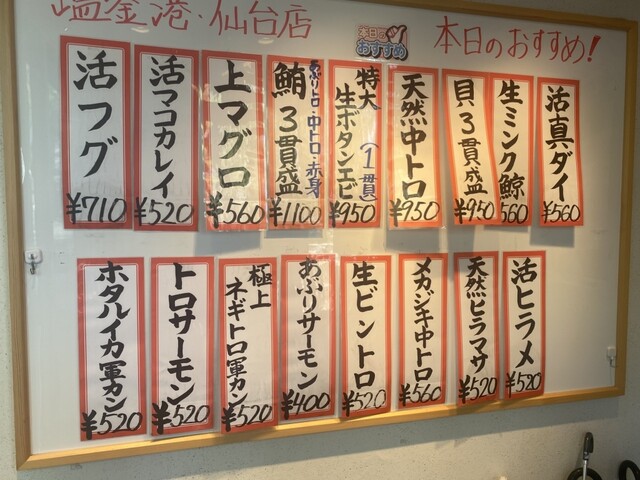 塩釜港・仙台店
本日のおすすめ
本日のおすすめ！
活真ダイ
¥560
生ミンク鯨
560
貝3貫盛
¥950
天然中トロ
¥950
特大（1貫）
生ボタンエビ
¥950
あぶりトロ・中トロ・赤身
鮪3貫盛
¥1100
上マグロ
¥560
活マコカレイ
¥520
活フグ
¥710
活ヒラメ
¥520
天然ヒラマサ
¥520
メカジキ中トロ
¥560
生ビントロ
¥520
あぶりサーモン
¥400
極上
ネギトロ軍カン
¥520
トロサーモン
¥520
ホタルイカ軍カン
¥520